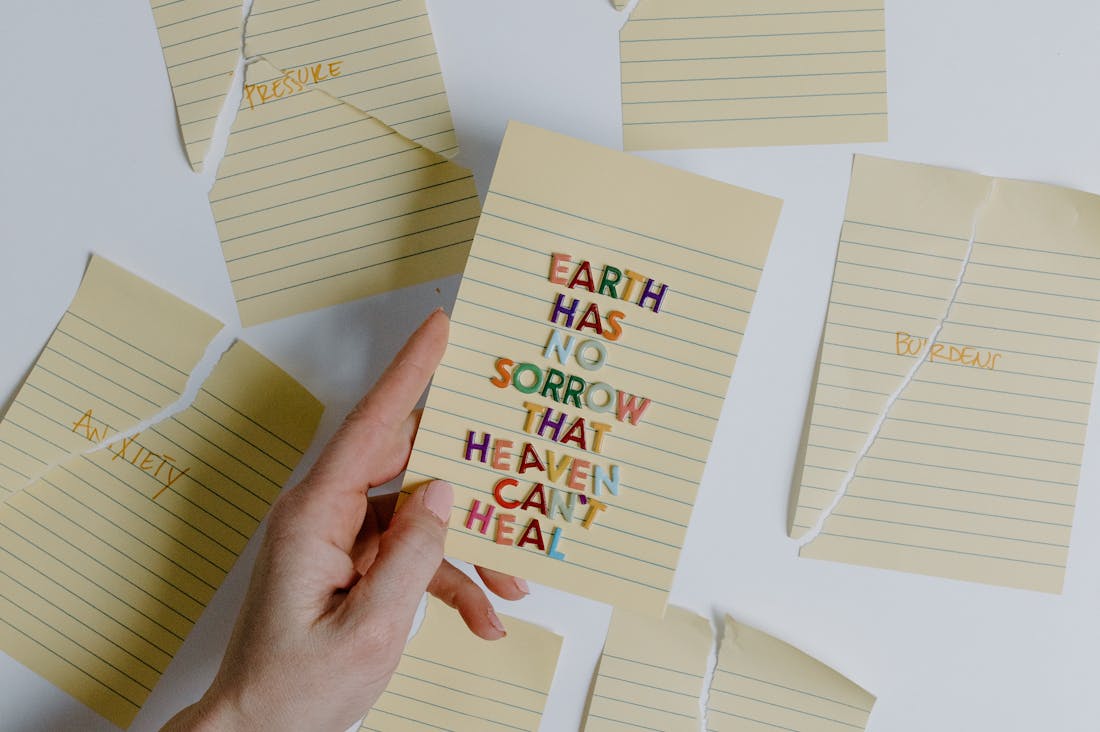 PRESSURE
EARTH
HAS
NO
SORROW
THAT
HEAVEN
CAN'T
HEAL
BURDENS
ANXIETY